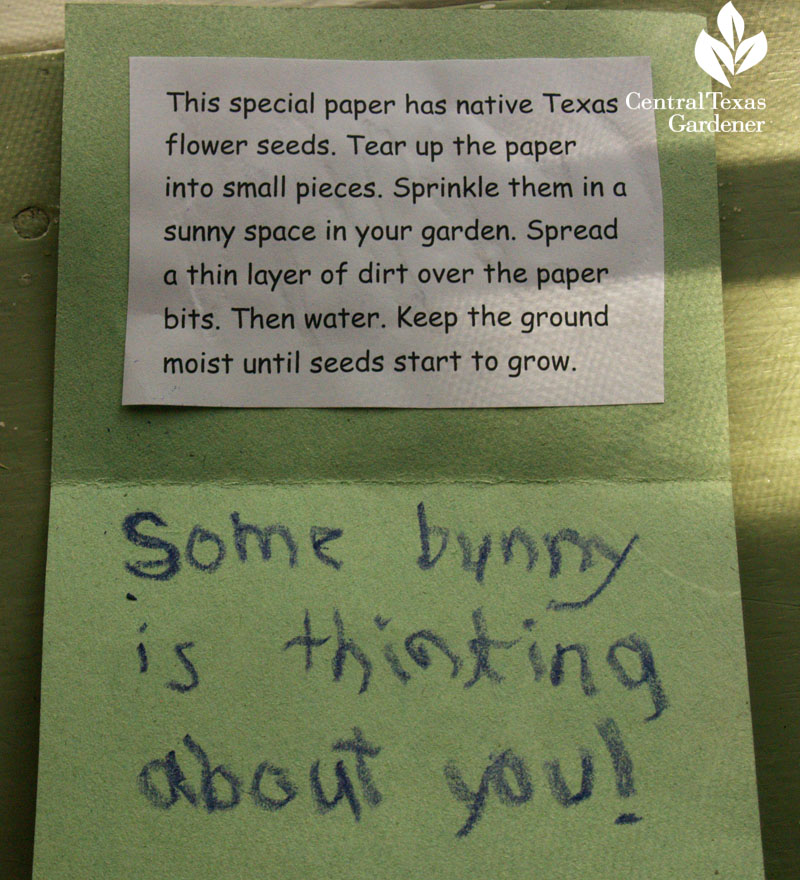 Central Texas
Gardener
This special paper has native Texas
flower seeds. Tear up the paper
into small pieces. Sprinkle them in a
sunny space in your garden. Spread
a thin layer of dirt over the paper
bits. Then water. Keep the ground
moist until seeds start to grow.
Some bunny
is thinking
about you!